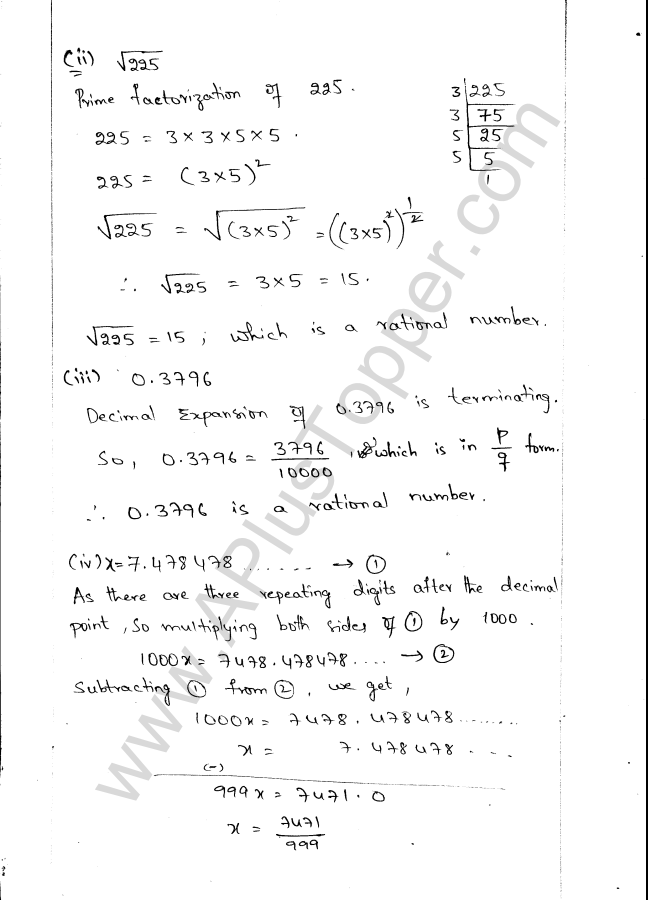 (ii) √225
Prime factorization of 225.
3 | 225
3 | 75
5 | 25
5 | 5
1
225 = 3 × 3 × 5 × 5.
225 = (3×5)²
√225 = √(3×5)² = ((3×5)²)^1/2
∴ √225 = 3×5 = 15.
√225 = 15 ; which is a rational number.
(iii) 0.3796
Decimal Expansion of 0.3796 is terminating.
So, 0.3796 = 3796/10000, which is in p/q form.
∴ 0.3796 is a rational number.
(iv) x = 7.478478 ....... → ①
As there are three repeating digits after the decimal
point, So multiplying both sides of ① by 1000.
1000x = 7478.478478.... → ②
Subtracting ① from ②, we get,
1000x = 7478.478478........
x = 7.478478 ...
(-)
999x = 7471.0
x = 7471/999
www.APlusTopper.com